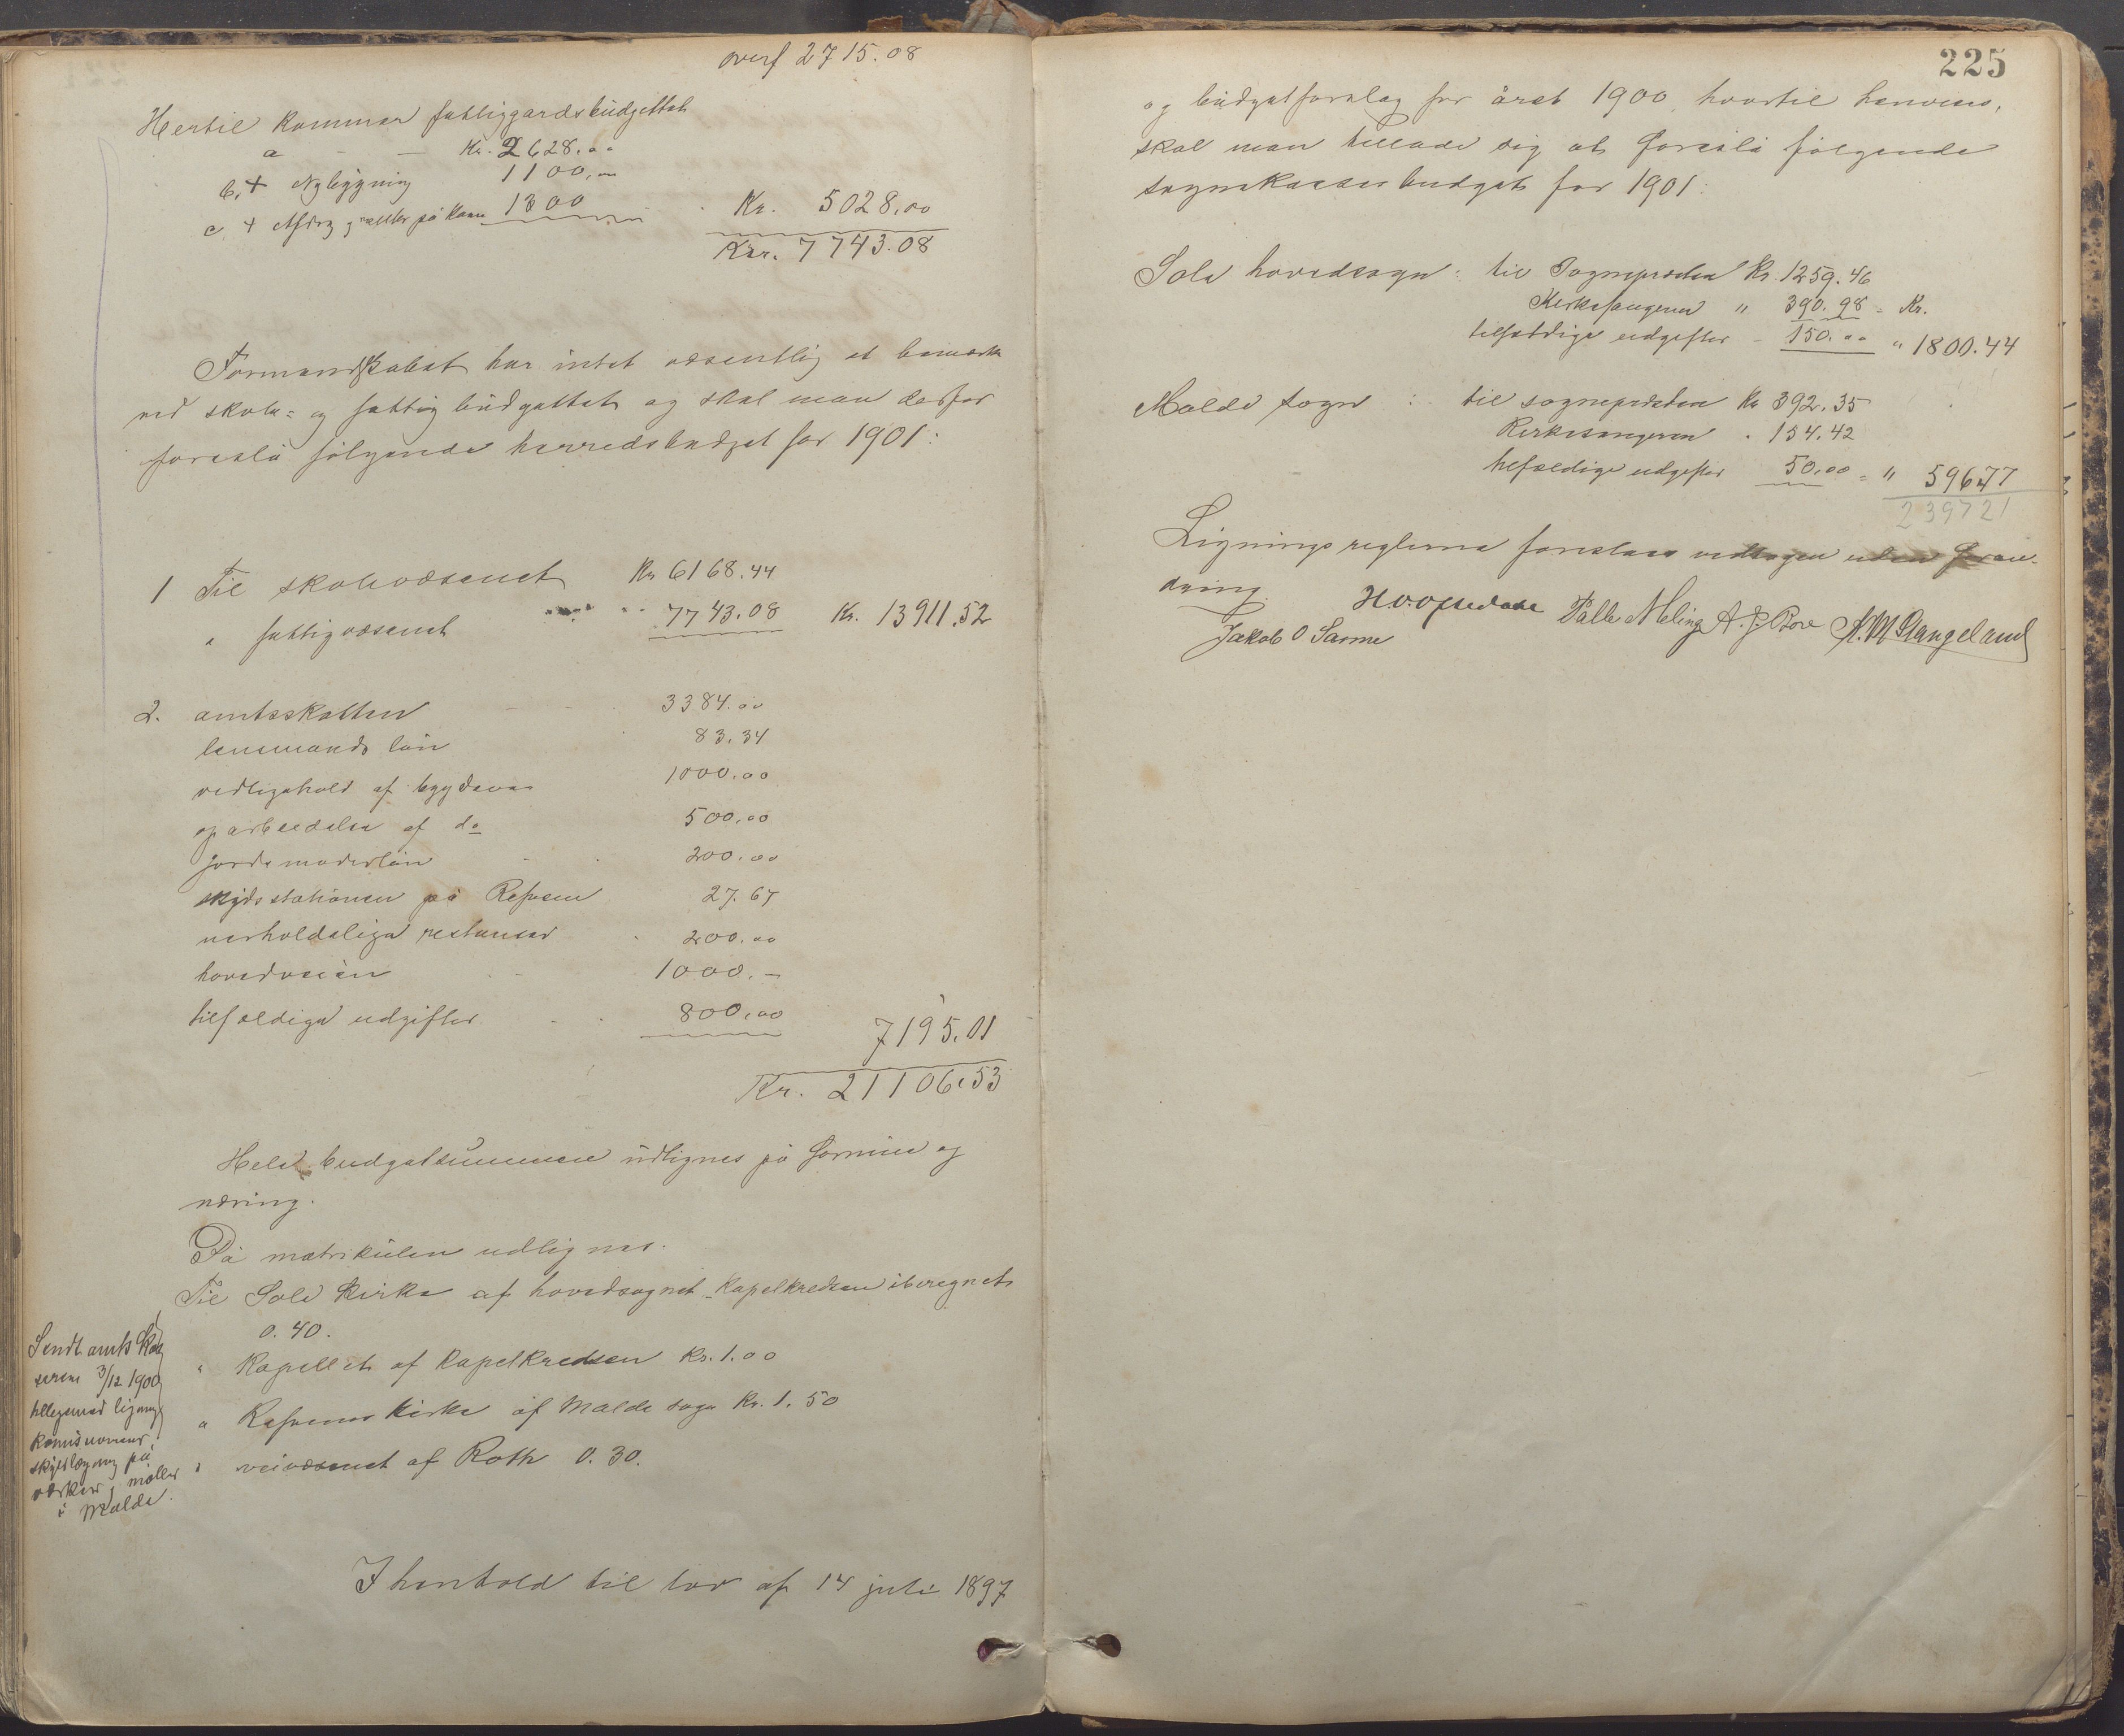 overf 2715.08
Hertil kommer fattiggårdsbudgettet
a — — Kr. 2628.00
b. + Nybygning 1100.00
c + Afdrag og renter på laan 1300 Kr. 5028.00
Kr. 7743.08
Formandskabet har intet væsentlig at bemærke
ved skole= og fattigbudgettet og skal man derfor
foreslå følgende herredsbudget for 1901:
1 Til skolevæsenet Kr 6168.44
" fattigvæsenet 7743.08 Kr. 13911.52
2. amtsskatten 3384.00
lensmands løn 83.34
vedligehold af bygdevei 1000.00
oparbeidelse af do 500.00
jordemoderløn 200.00
skydsstationen på Refsnes 27.67
uerholdelige restanser 200.00
hovedveien 1000.—
tilfældige udgifter 800.00
7195.01
Kr. 21106.53
Hele budgetsummen udlignes på formue og
næring.
På matrikulen udlignes.
Til Sole kirke af hovedsognet – kapelkredsen iberegnet
0.40.
" Kapellet af kapelkredsen Kr. 1.00
" Refsnes kirke af Malde sogn Kr. 1.50
" veivæsenet af Roth 0.30.
Sendt amtskas
sereren 3/12 1900
tillegsmed ligning
komisionens
skyldlægning på
værker og møller
i Malde.
I henhold til lov af 14 juli 1897
225
og budgetforslag for året 1900, hvortil henvises,
skal man tillade sig at foreslå følgende
sognekassesbudget for 1901:
Sole hovedsogn: til Sognepresten Kr. 1259.46
Kirkesangeren " 390.98 = Kr.
tilfældige udgifter – 150.00 " 1800.44
Malde sogn : til sognepresten Kr 392.35
Kirkesangeren " 154.42
tilfældige udgifter 50.00 = " 596.77
239721
Ligningsreglerne foreslaaes vedtagen uden foran-
dring.
Pålle Meling A. J. Bore K. M Stangeland
Jakob O Sømme